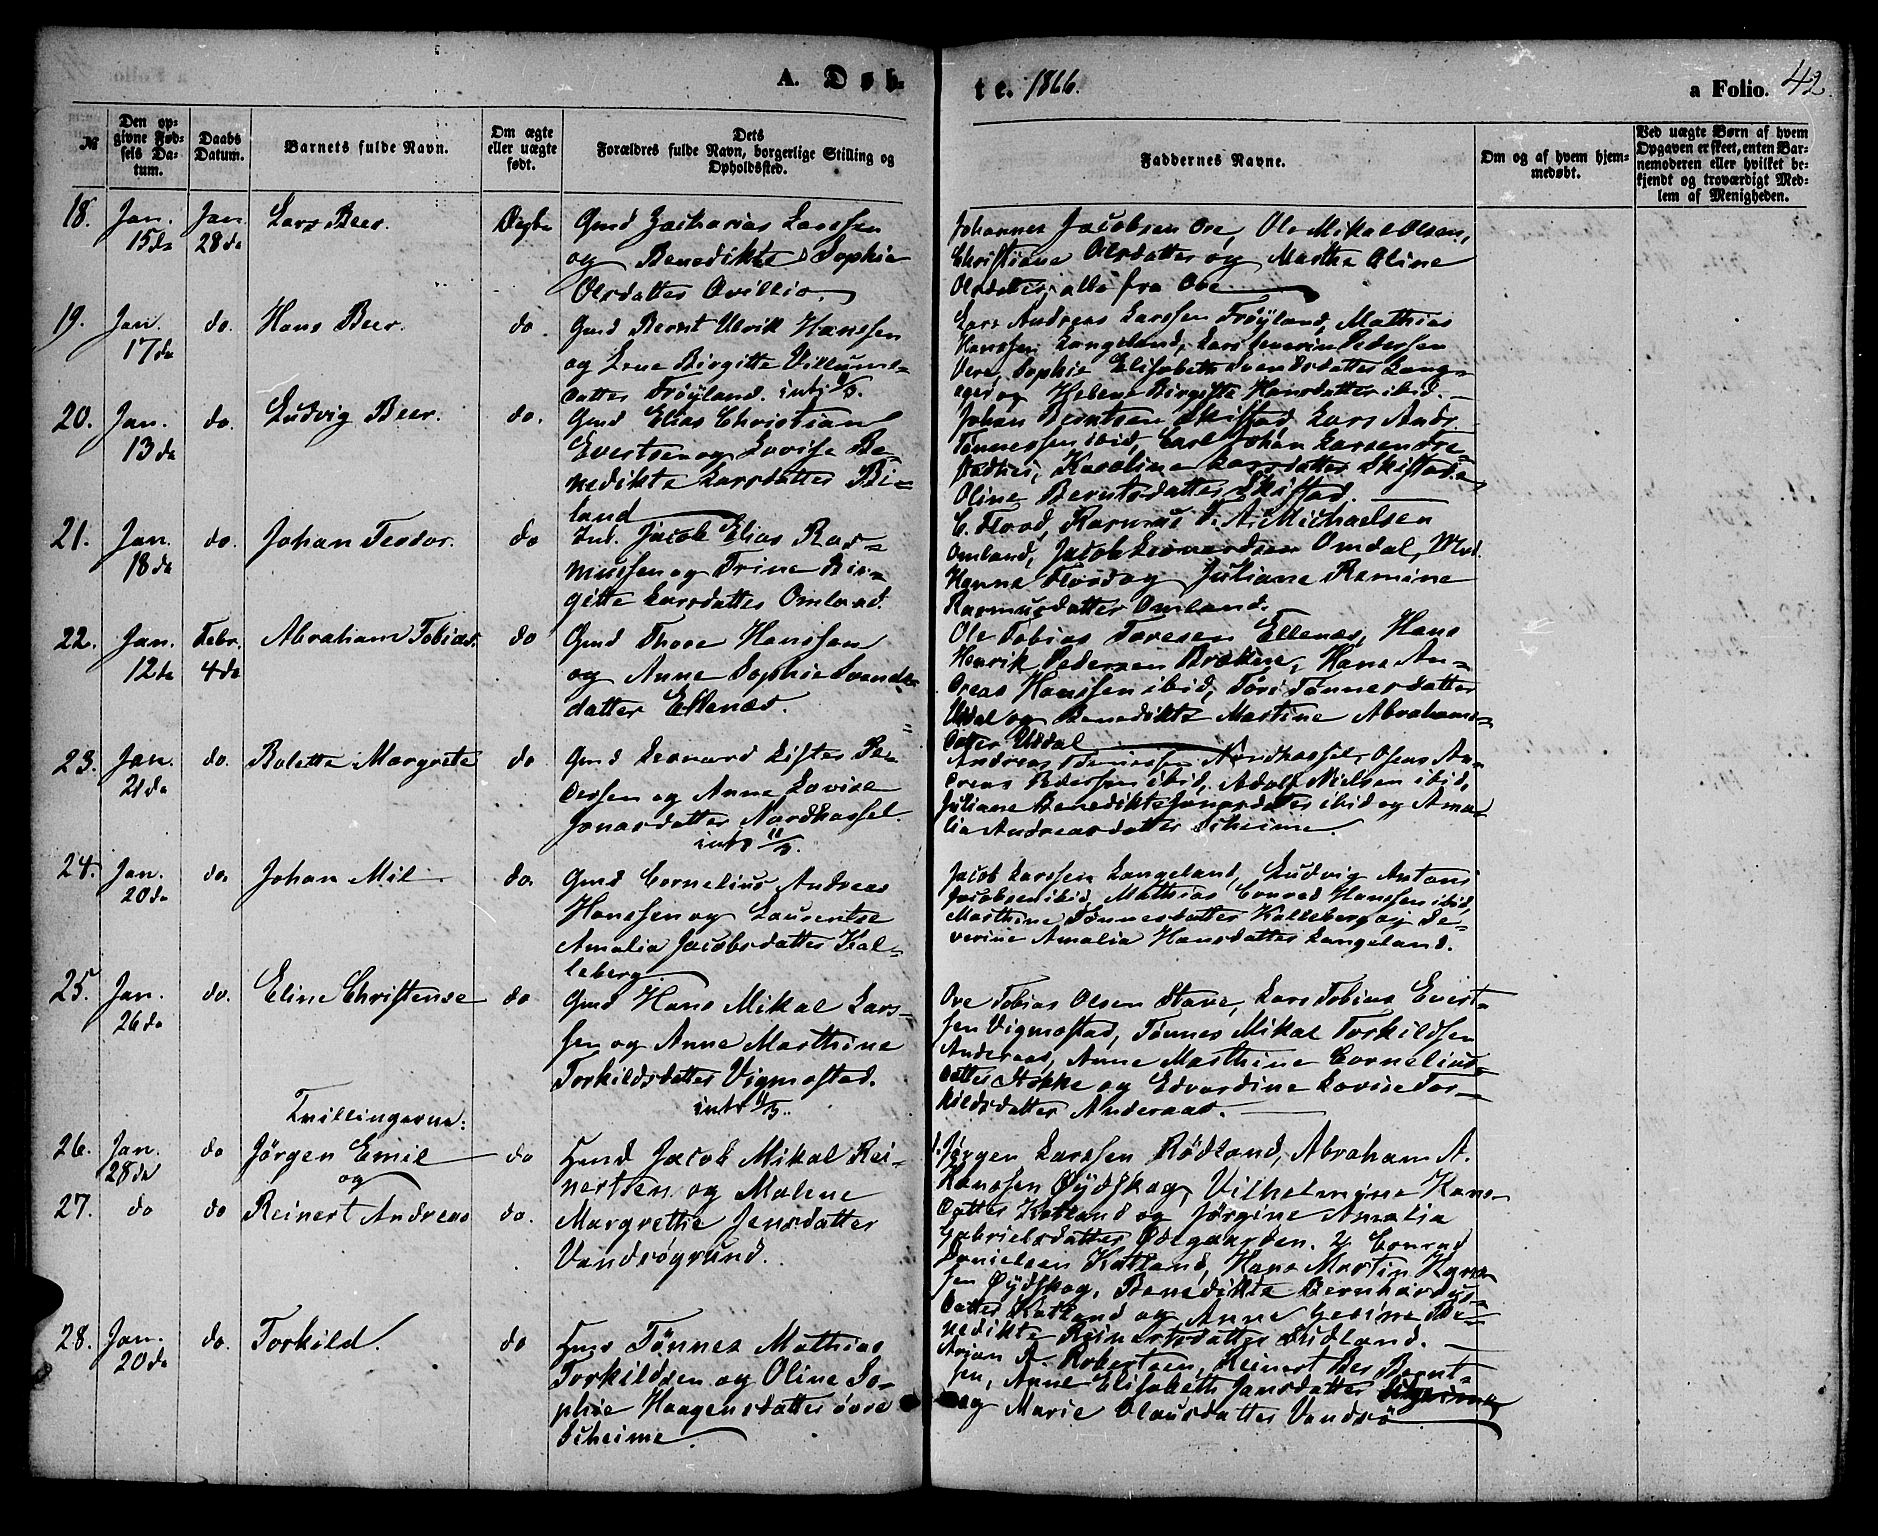 A. Døb-
te. 1866.
a Folio. 42.
№
Den op-
givne Fød-
sels Da-
tum.
Daabs
Datum.
Barnets fulde Navn.
Om ægte
eller uægte
født.
Dets
Forældres fulde Navn, borgerlige Stilling og
Opholdssted.
Faddernes Navne.
Om og af hvem hjem-
medøbt.
Ved uægte Børn af hvem
Opgaven er skeet, enten Bar-
nemoderen eller hvilket be-
kjendt og troværdigt Med-
lem af Menigheden.
18. Jan. 15de Jan 28de Lars Beer. Ægte
Gmd Zacharias Larssen
og Benedikte Sophie
Olsdatter
Johannes Jacobsen Ore, Ole Mikal Olsen,
Christiane Olsdatter og Marthe Oline
Olsdatter, alle fra Ore
19. Jan. 17de do. Hans Beer. do.
Gmd Bernt Ulrik Hanssen
og Lene Birgitte Villums-
datter Frøyland. intr
Lars Andreas Larssen Frøyland, Mathias
Hanssen Langeland, Lars Severin Pedersen
Vere, Sophie Elisabeth Svendsdatter Lang-
og Helene Birgitte Hansdatter ibid.
20. Jan. 13de do. Ludvig Beer. do.
Gmd Elias Christian
Evertsen og Lovise Be-
nedikte Larsdatter Bi-
land
Johan Berntsen Skifstad, Lars Andr.
Tønnessen ibid, Carl Johan Larsen
Karoline Larsdatter Skifstad
Oline Berntsdatter Skifstad.
21. Jan. 18de do. Johan Teodor. do
Ind. Jacob Elias Ras-
mussen og Trine Bir-
gitte Larsdatter Omland.
C. Flood, Rasmus Michaelsen
Omland, Jacob Leonardsen Omdal, Mad.
Hanna Flood og Juliane Ramine
Rasmusdatter Omland.
22. Jan. 12de Febr. 4de Abraham Tobias. do
Gmd Thore Hanssen
og Anne Sophie Svends-
datter Ellenæs.
Ole Tobias Toresen Ellenæs, Hans
Henrik Pedersen Brække, Hans An-
dreas Hanssen ibid, Tøri Tønnesdatter
Uddal og Benedikte Martine Abrahams-
datter Uddal
23. Jan. 21de do. Bolette Margrete do
Gmd Leonard Lister Pe-
dersen og Anne Lovise
Jonasdatter Nordhassel.
intr 11/3.
Andreas Nordhassel, Osens An-
dreas Pedersen ibid, Adolf Nielsen ibid,
Juliane Benedikte Jonasdatter ibid og Ama-
lia Andreasdatter Scheime.
24. Jan. 20de do. Johan Mil do.
Gmd Cornelius Andreas
Hanssen og Laurentse
Amalia Jacobsdatter Kal-
leberg
Jacob Larssen Langeland, Ludvig Antoni
Jacobsen ibid, Mathias Conrad Hanssen ibid,
Marthine Tønnesdatter Kalleberg og Se-
verine Amalia Hansdatter Langeland.
25. Jan. 26de do. Eline Christense do
Gmd Hans Mikal Lars-
sen og Anne Marthine
Torkildsdatter Vigmostad.
intr 11/3.
Ove Tobias Olsen Stave, Lars Tobias Evert-
sen Vigmostad, Tønnes Mikal Torkildsen
Anderaas, Anne Marthine Cornelius-
datter Stokke og Edvardine Lovise Tor-
kildsdatter Anderaas.
Tvillingerne:
26. Jan. 28de do Jørgen Emil do
og
27. do do Reinert Andreas do.
Hmd Jacob Mikal Rei-
nertsen og Malene
Margrethe Jensdatter
Vandsøgrund.
1. Jørgen Larssen Rødland, Abraham A.
Hanssen Øydskog, Vilhelmine Hans-
datter Katland og Jørgine Amalia
Gabrielsdatter Ødegaarden. 2. Conrad
Danielsen Katland, Hans Martin Hans-
sen Øydskog, Benedikte Bernhardus-
datter Katland og Anne Gesine Be-
nedikte Reinertsdatter
28. Jan. 20de do. Torkild. do
Hmd Tønnes Mathias
Torkildsen og Oline So-
phie Haagensdatter øvre
Scheime.
Arjan A. Robertsen, Reinert Ber Bernt-
sen, Anne Elisabeth Jansdatter
og Marie Olausdatter Vandsø